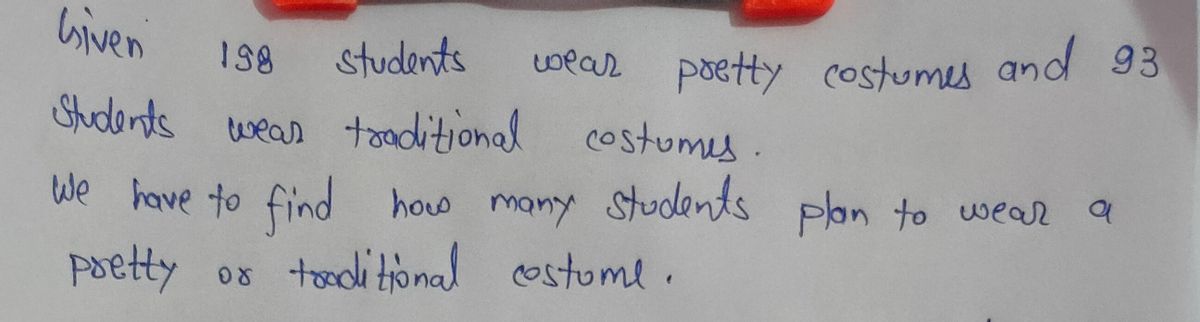 Given 198 students wear pretty costumes and 93
Students wear traditional costumes.
We have to find how many students plan to wear a
pretty or traditional costume.